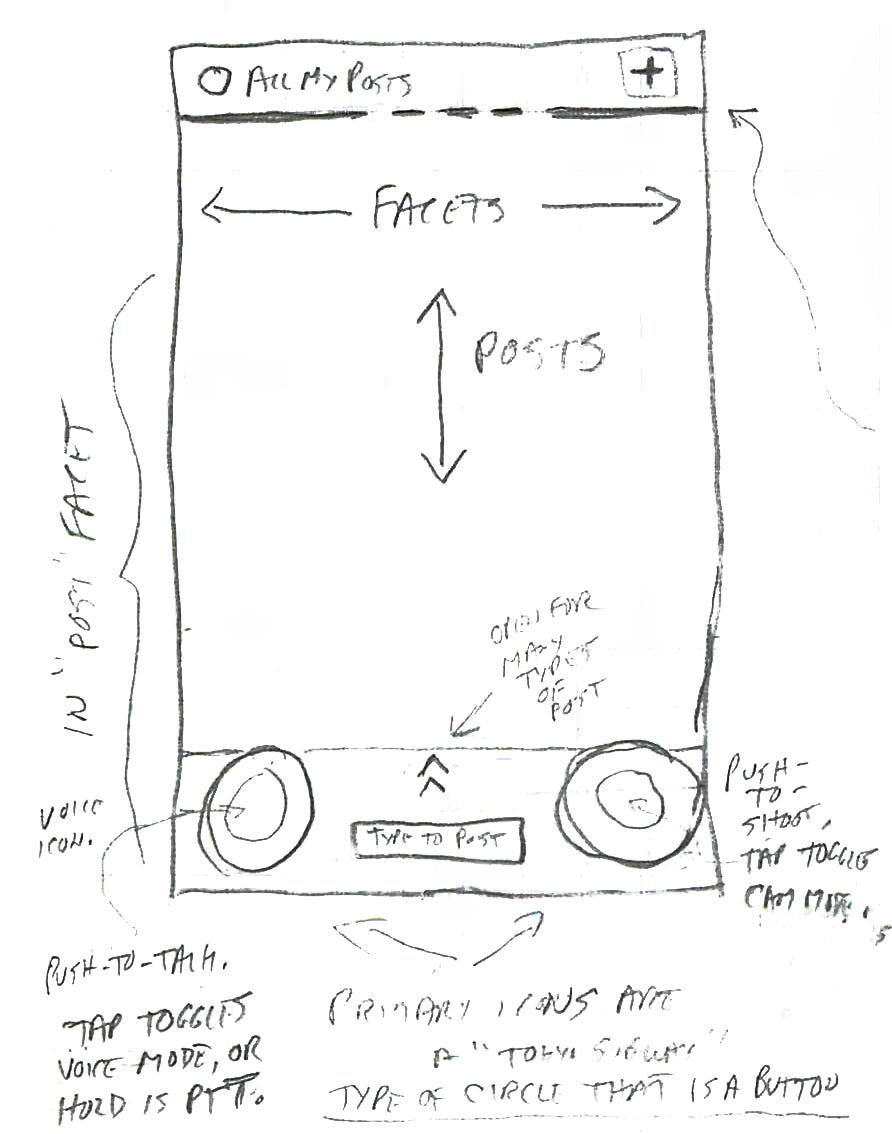 All My Posts
+
FACETS
POSTS
IN "POST" FACET
OPEN FOR
MANY
TYPES
OF
POST
VOICE
ICON.
TYPE TO POST
PUSH-
TO-
SHOOT,
TAP TOGGLE
CAM MODE.
PUSH-TO-TALK.
TAP TOGGLES
VOICE MODE, OR
HOLD IS PTT.
PRIMARY ICONS ARE
A "
TYPE OF CIRCLE THAT IS A BUTTON